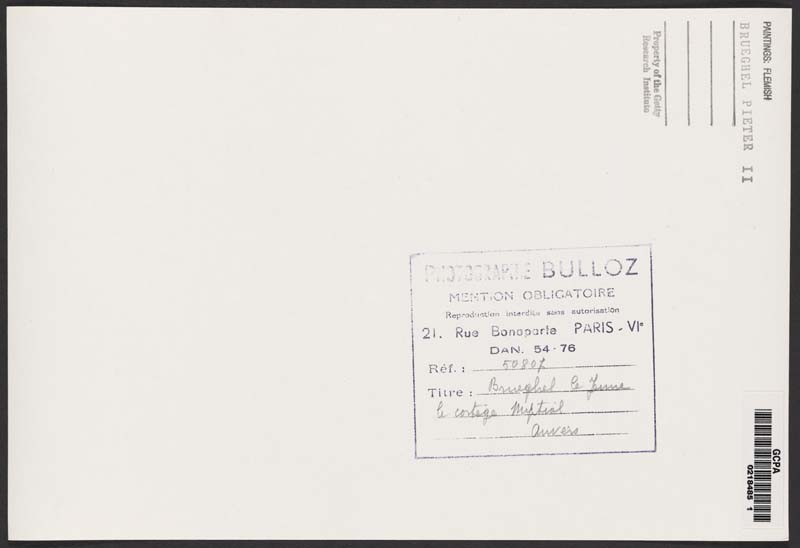 PAINTINGS: FLEMISH
BRUEGHEL PIETER II
Property of the Getty
Research Institute
PHOTOGRAPHIE BULLOZ
MENTION OBLIGATOIRE
Reproduction interdite sans autorisation
21. Rue Bonaparte PARIS - VIe
DAN. 54-76
Réf. :
Titre : Brueghel le Jeune
le cortège Nuptial
Anvers
GCPA
0218485 1